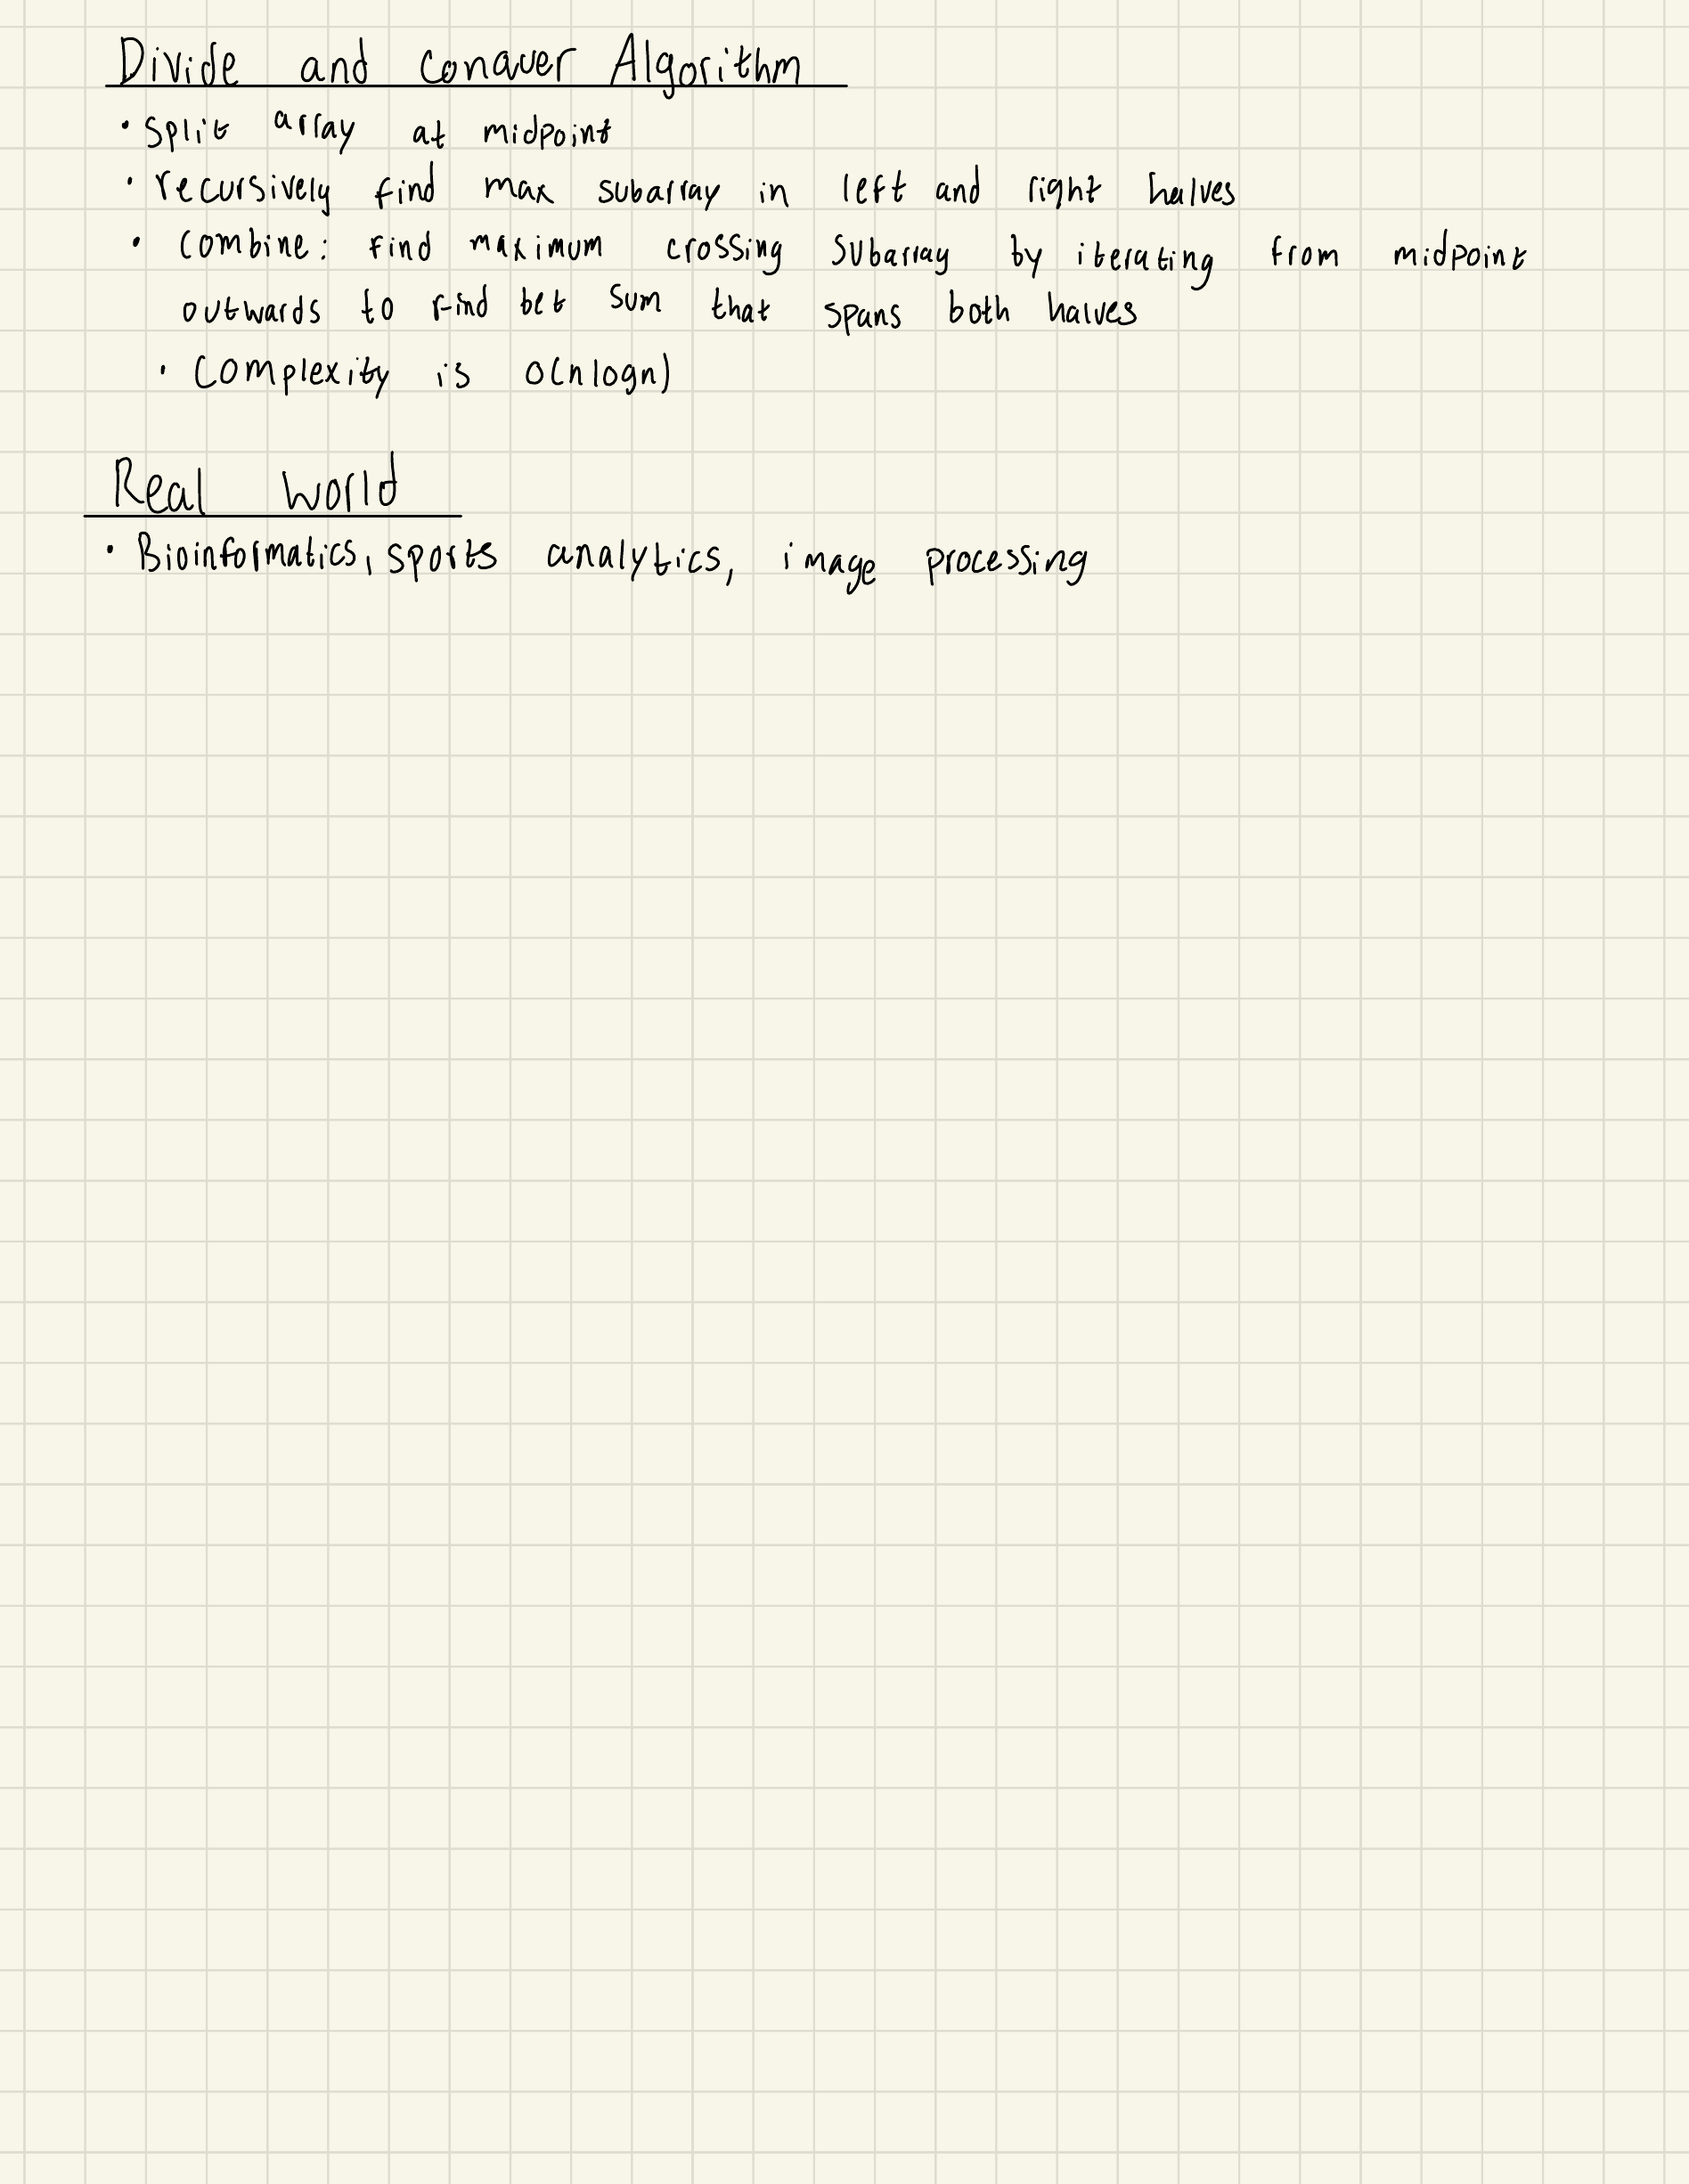 Divide and conquer Algorithm
• split array at midpoint
• recursively find max subarray in left and right halves
• Combine: find maximum crossing subarray by iterating from midpoint
outwards to find bet sum that spans both halves
• Complexity is O(nlogn)
Real world
• Bioinformatics, sports analytics, image processing